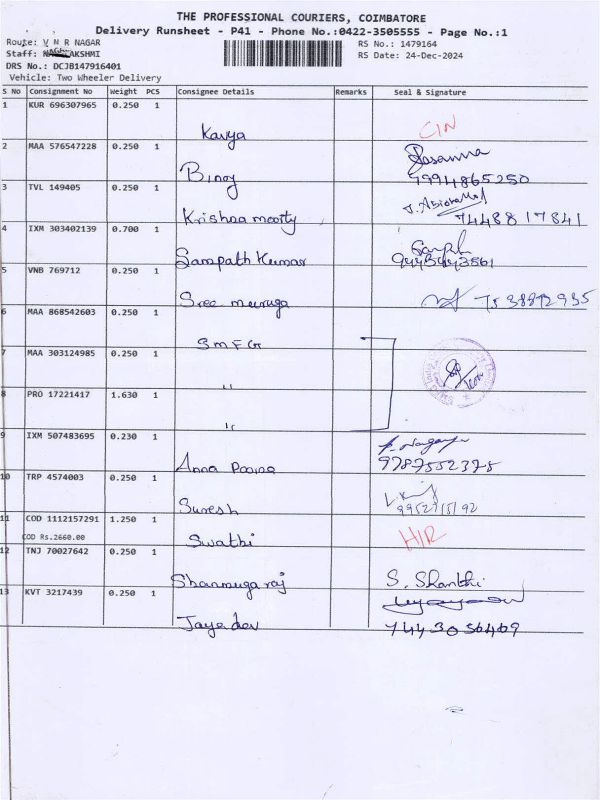 THE PROFESSIONAL COURIERS, COIMBATORE
Delivery Runsheet - P41 - Phone No.:0422-3505555 - Page No.:1
Route: V N R NAGAR
RS No.: 1479164
Staff: NAGALAKSHMI
RS Date: 24-Dec-2024
DRS No.: DCJB147916401
Vehicle: Two Wheeler Delivery
S No Consignment No Weight PCS Consignee Details Remarks Seal & Signature
1 KUR 696307965 0.250 1
Kavya CIN
2 MAA 576547228 0.250 1
Binoy 9994865250
3 TVL 149405 0.250 1
Krishna moorty 7448817841
4 IXM 303402139 0.700 1
Sampath Kumar 9443443561
5 VNB 769712 0.250 1
Sree muruga
6 MAA 868542603 0.250 1
SMFG
7 MAA 303124985 0.250 1
"
8 PRO 17221417 1.630 1
"
9 IXM 507483695 0.230 1
Anna Poorna 9787552375
10 TRP 4574003 0.250 1
Suresh
11 COD 1112157291 1.250 1
COD Rs.2660.00
Swathi H/R
12 TNJ 70027642 0.250 1
Shanmuga raj S. Shanthi
13 KVT 3217439 0.250 1
Jayadev 7443056409